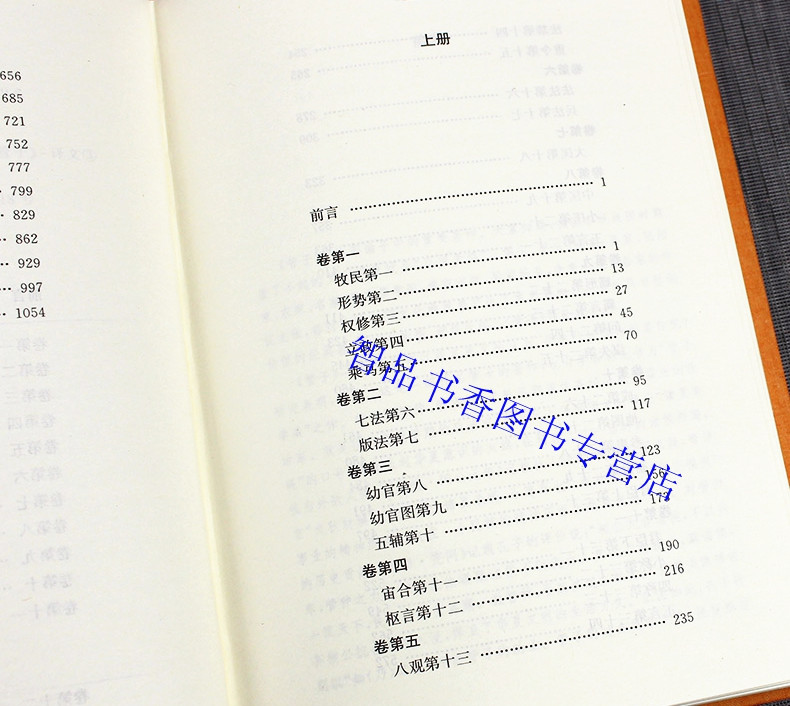 656
685
721
752
777
799
829
862
929
997
1054
上册
前言 1
卷第一
牧民第一 1
形势第二 13
权修第三 27
立政第四 45
乘马第五 70
卷第二
七法第六 95
版法第七 117
卷第三
幼官第八 123
幼官图第九 156
五辅第十
卷第四
宙合第十一 190
枢言第十二 216
卷第五
八观第十三 235
智品书香图书专营店